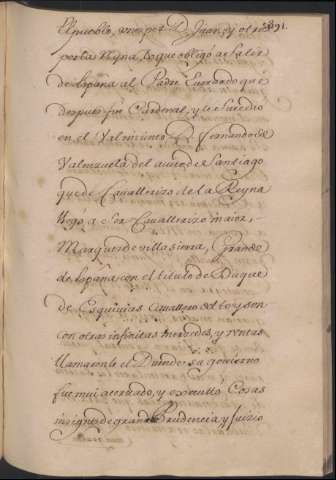 El pueblo, unos por D. Juan, y otros 391.
por la Reyna, lo que obligó a salir
de España al Padre Everardo que
despues fue Cardenal, y le suzedio
en el Valimiento D. Fernando de
Valenzuela del avito de Santiago
que de Cavallerizo de la Reyna
llego a ser Cavallerizo maior,
Marques de villa sierra, Grande
de España con el titulo de Duque
de Esquivias Cavallero del
con otras infinitas mercedes, y rentas
llamaronle el Duende, su govierno
fue mui acertado, y executto Cosas
insignes de grande Prudencia y Juizio